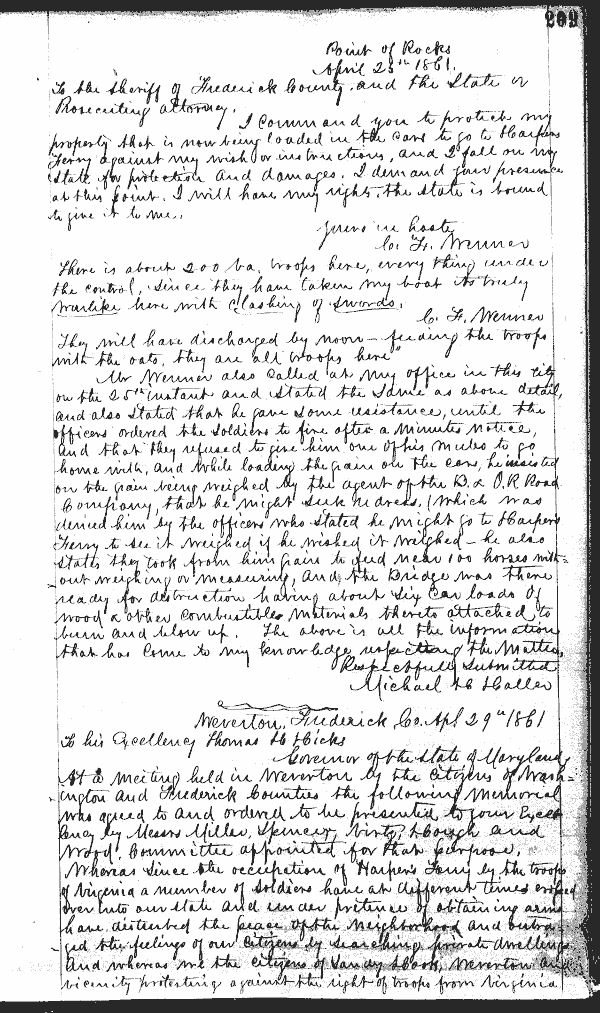 209
Point of Rocks
April 25th 1861.
To the Sheriff of Frederick County and the State or
Prosecuting attorney.
I command you to protect my
property that is now being loaded in the cars to go to Harpers
Ferry against my wish or instructions, and I fall on my
State for protection and damages. I demand your presence
at this point. I will have my rights, the State is bound
to give it to me.
Yours in haste
C. F. Wenner
There is about 200 Va. troops here, every thing under
the control, since they have taken my boat its truly
warlike here with clashing of swords.
C. F. Wenner
They will have discharged by noon - feeding the troops
with the oats, they are all troops here"
Mr Wenner also called at my office in this city
on the 25th instant and stated the same as above detail,
and also stated that he gave some resistance, until the
officers ordered the soldiers to fire after a minutes notice,
and that they refused to give him one of his mules to go
home with, and while loading the grain on the cars, he insisted
on the grain being weighed by the agent of the B. & O. R Road
Company, that he might seek redress, (which was
denied him by the officers who stated he might go to Harpers
Ferry to see it weighed if he wished it weighed - he also
states they took from him grain to feed near 100 horses with-
out weighing or measuring, and the Bridge was there
ready for destruction having about six car loads of
wood & other combustible materials thereto attached to
burn and blow up. The above is all the information
that has come to my knowledge respecting the matter,
Respectfully Submitted
Michael H Haller
Weverton, Frederick Co. Apl 29th 1861
To his Excellency Thomas H Hicks
Governor of the State of Maryland,
At a meeting held in Weverton by the citizens of Wash-
ington and Frederick Counties the following Memorial
was agreed to and ordered to be presented to your Excel-
lency by Messrs Miller, Spencer, Hough and
Wood, Committee appointed for that purpose.
Whereas since the occupation of Harpers Ferry by the troops
of Virginia a number of soldiers have at different times crossed
over into our state and under pretence of obtaining arms
have disturbed the peace of the neighborhood and outra-
ged the feelings of our citizens by searching private dwellings
And whereas we the citizens of Sandy Hook, Weverton and
vicinity protesting against the right of troops from Virginia